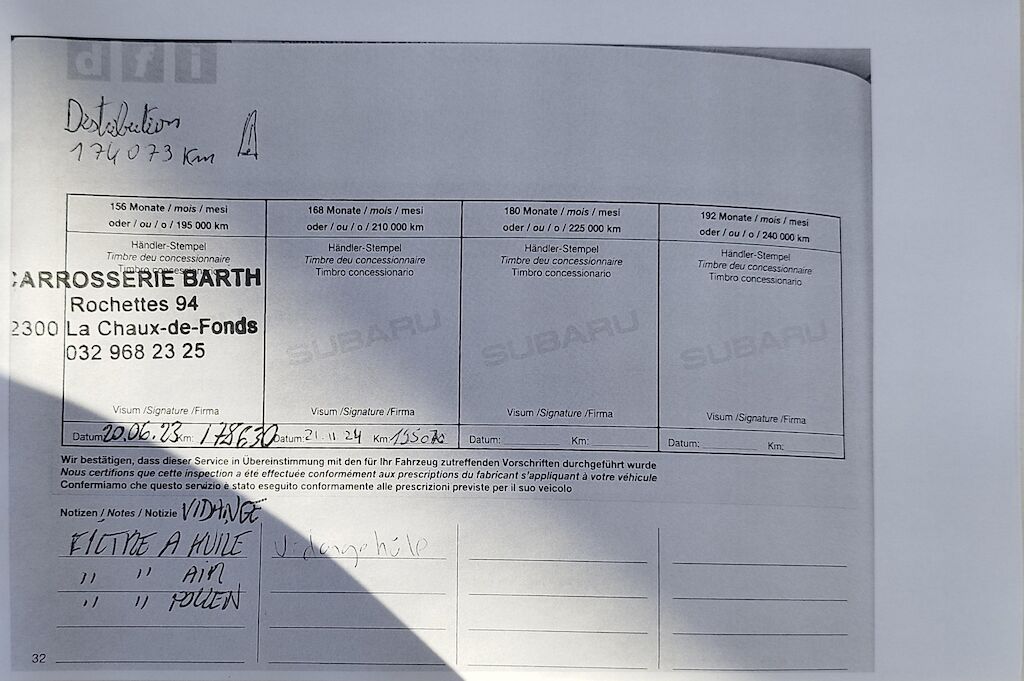 dfi
Distribution
174073 Km
156 Monate / mois / mesi
oder / ou / o / 195 000 km
Händler-Stempel
Timbre du concessionnaire
Timbro concessionario
CARROSSERIE BARTH
Rochettes 94
2300 La Chaux-de-Fonds
032 968 23 25
Visum /Signature /Firma
Datum: 20.06.23 Km: 178630
168 Monate / mois / mesi
oder / ou / o / 210 000 km
Händler-Stempel
Timbre deu concessionnaire
Timbro concessionario
SUBARU
Visum /Signature /Firma
Datum: 21.11.24 Km:
180 Monate / mois / mesi
oder / ou / o / 225 000 km
Händler-Stempel
Timbre deu concessionnaire
Timbro concessionario
SUBARU
Visum /Signature /Firma
Datum: Km:
192 Monate / mois / mesi
oder / ou / o / 240 000 km
Händler-Stempel
Timbre deu concessionnaire
Timbro concessionario
SUBARU
Visum /Signature /Firma
Datum: Km:
Wir bestätigen, dass dieser Service in Übereinstimmung mit den für Ihr Fahrzeug zutreffenden Vorschriften durchgeführt wurde
Nous certifions que cette inspection a été effectuée conformément aux prescriptions du fabricant s'appliquant à votre véhicule
Confermiamo che questo servizio è stato eseguito conformamente alle prescrizioni previste per il suo veicolo
Notizen / Notes / Notizie VIDANGE
FILTRE A HUILE
" " AIR
" " POLLEN
Vidange
32